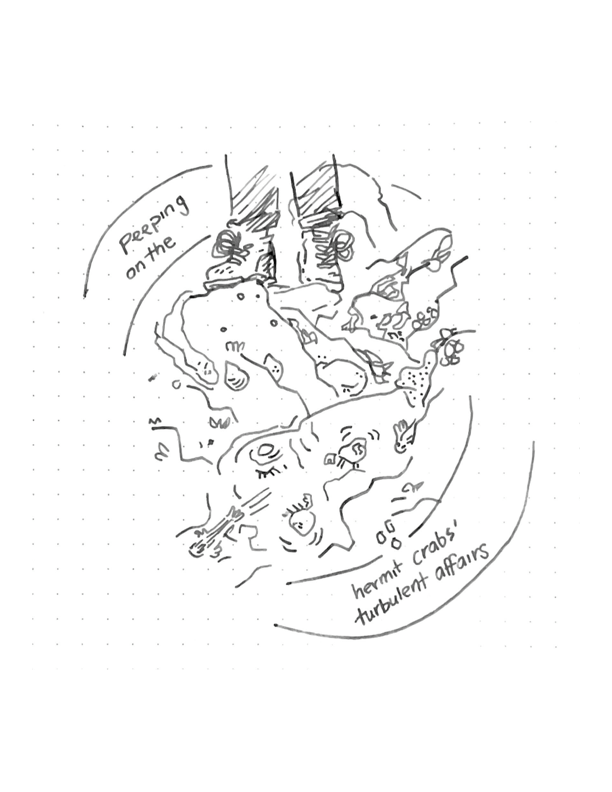 Peeping
on the
hermit crabs'
turbulent affairs